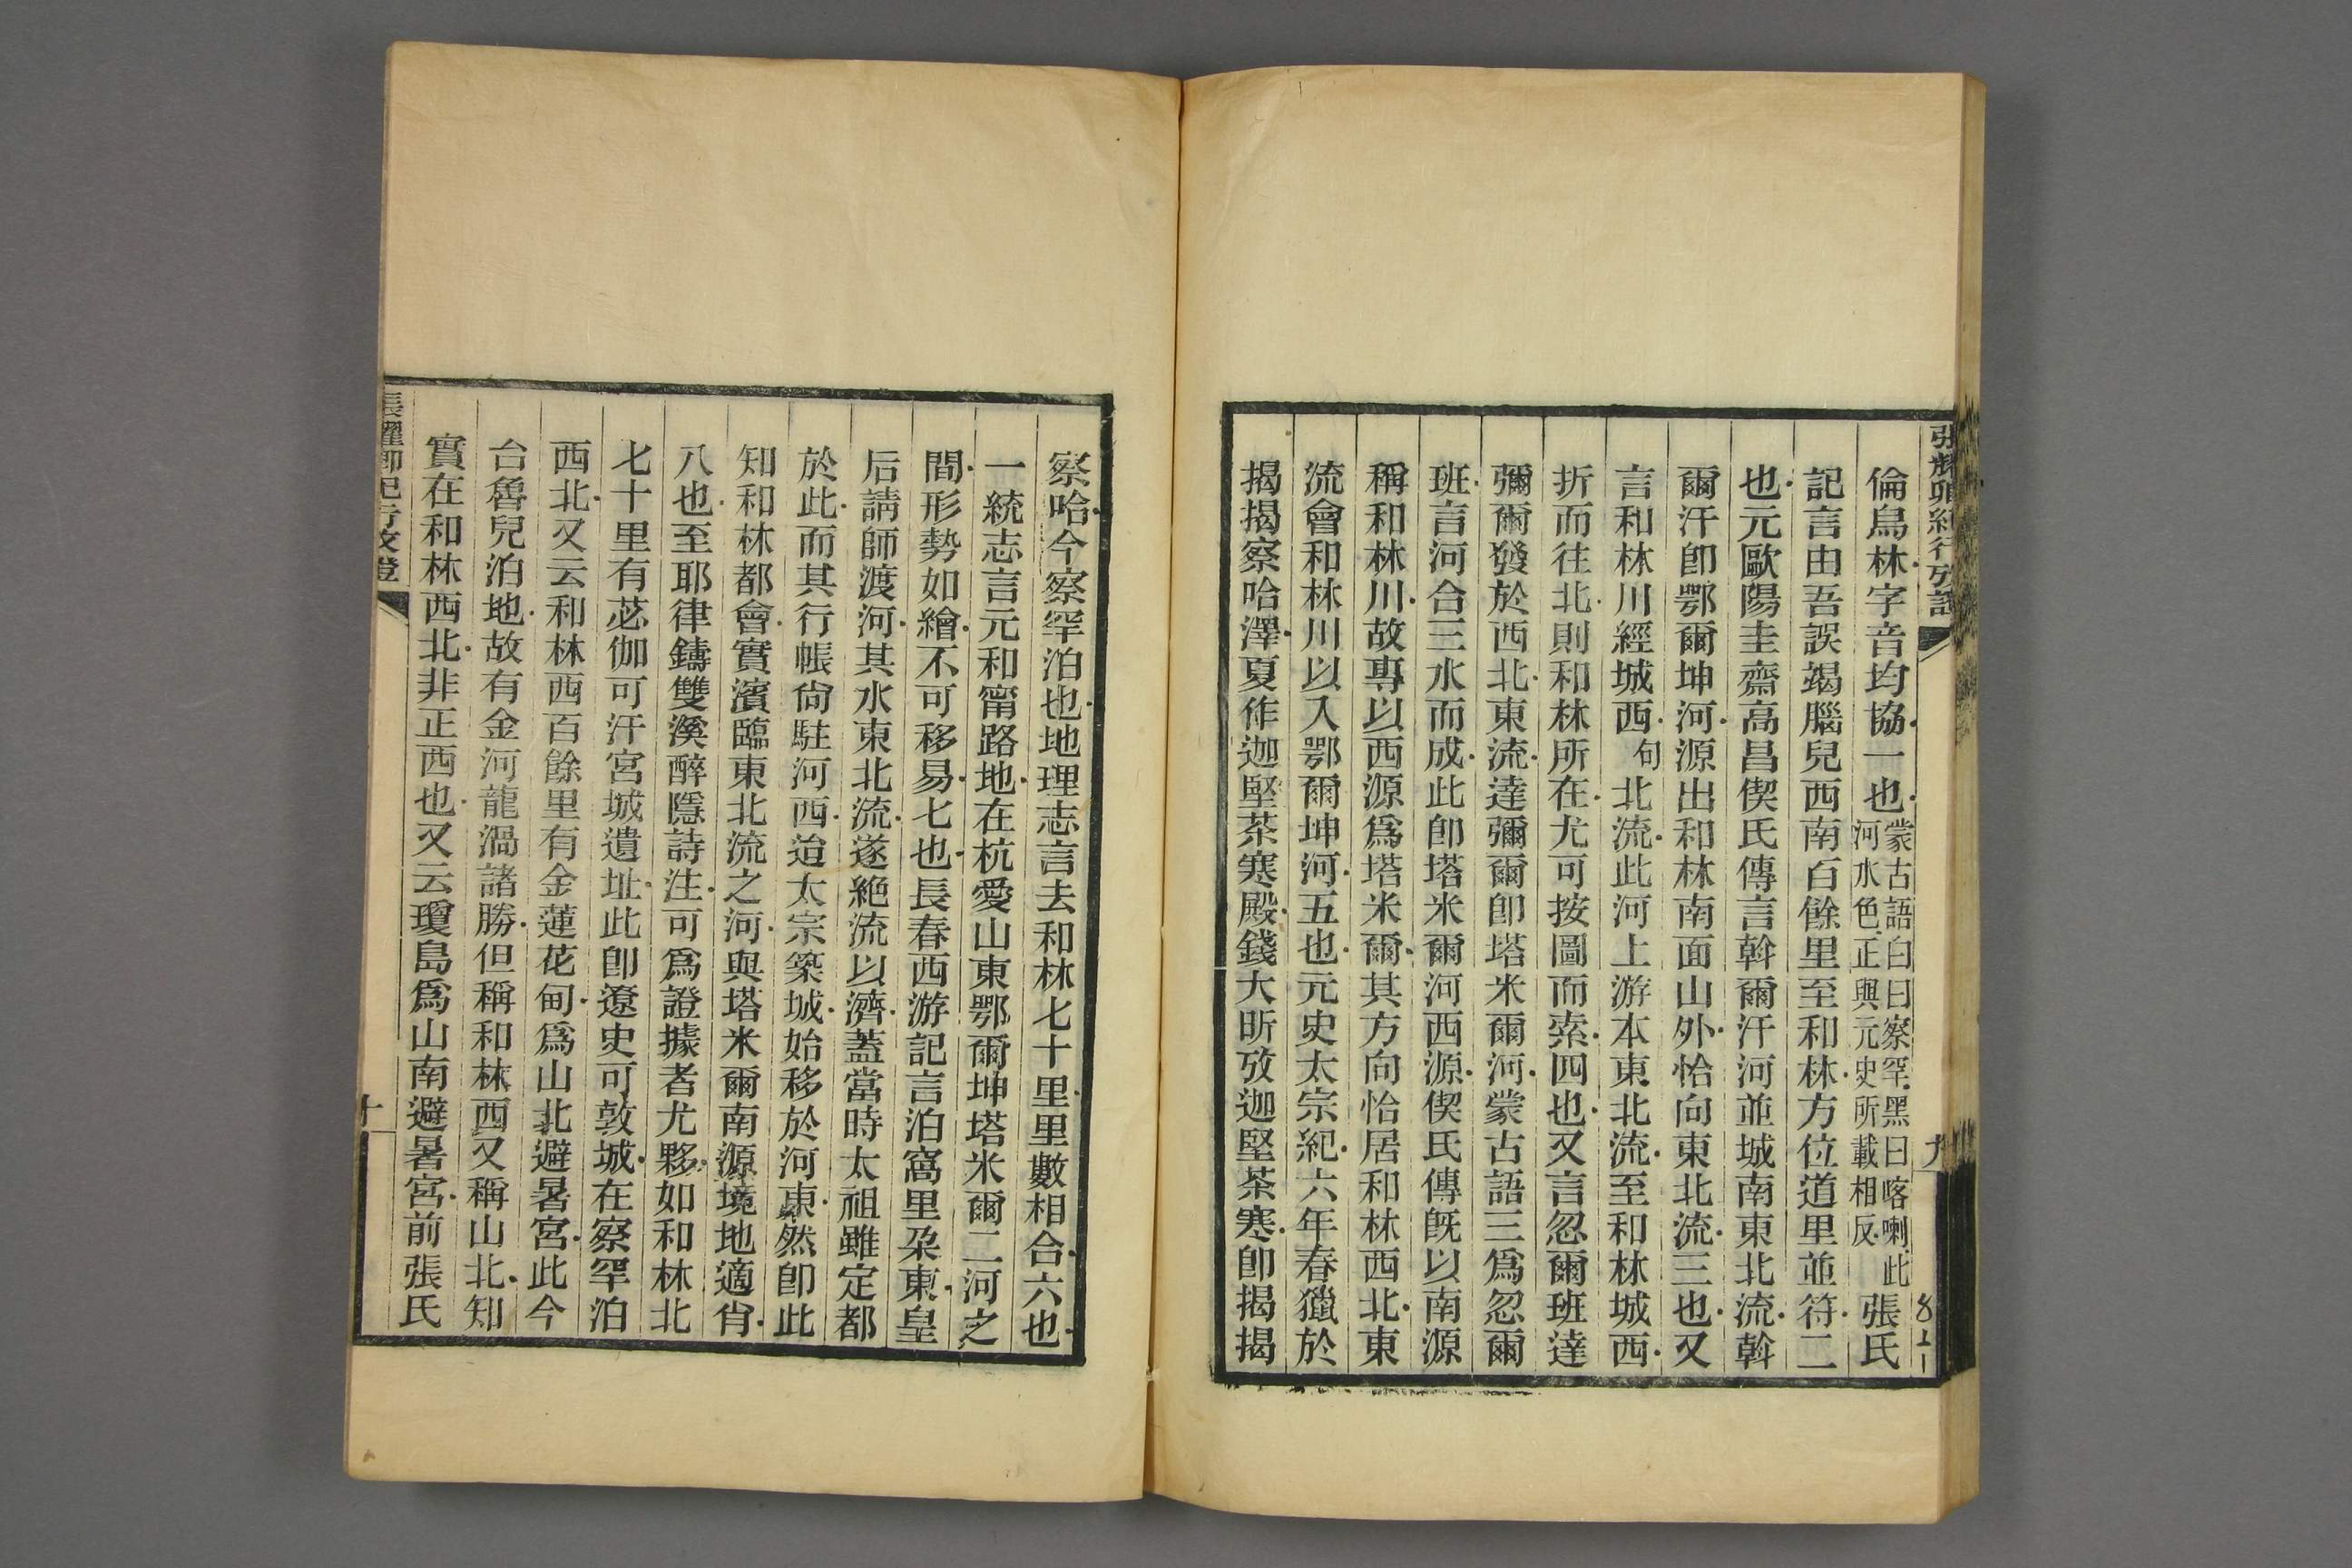 張耀卿紀行攷證
九
倫烏林字音均協一也蒙古語白曰察罕黑曰喀喇此河水色正與元史所載相反張氏
記言由吾誤竭腦兒西南百餘里至和林方位道里並符二
也元歐陽圭齋高昌偰氏傳言斡爾汗河並城南東北流斡
爾汗卽鄂爾坤河源出和林南面山外恰向東北流三也又
言和林川經城西句北流此河上游本東北流至和林城西
折而往北則和林所在尤可按圖而索四也又言忽爾班達
彌爾發於西北東流達彌爾卽塔米爾河蒙古語三爲忽爾
班言河合三水而成此卽塔米爾河西源偰氏傳旣以南源
稱和林川故專以西源爲塔米爾其方向恰居和林西北東
流會和林川以入鄂爾坤河五也元史太宗紀六年春獵於
揭揭察哈澤夏作迦堅茶寒殿錢大昕攷迦堅茶寒卽揭揭
察哈今察罕泊也地理志言去和林七十里里數相合六也
一統志言元和甯路地在杭愛山東鄂爾坤塔米爾二河之
間形勢如繪不可移易七也長春西游記言泊窩里朶東皇
后請師渡河其水東北流遂絶流以濟蓋當時太祖雖定都
於此而其行帳尙駐河西迨太宗築城始移於河東然卽此
知和林都會實濱臨東北流之河與塔米爾南源境地適肖
八也至耶律鑄雙溪醉隱詩注可爲證據者尤夥如和林北
七十里有苾伽可汗宮城遺址此卽遼史可敦城在察罕泊
西北又云和林西百餘里有金蓮花甸爲山北避暑宮此今
台魯兒泊地故有金河龍渦諸勝但稱和林西又稱山北知
實在和林西北非正西也又云瓊島爲山南避暑宮前張氏
張耀卿紀行攷證
十